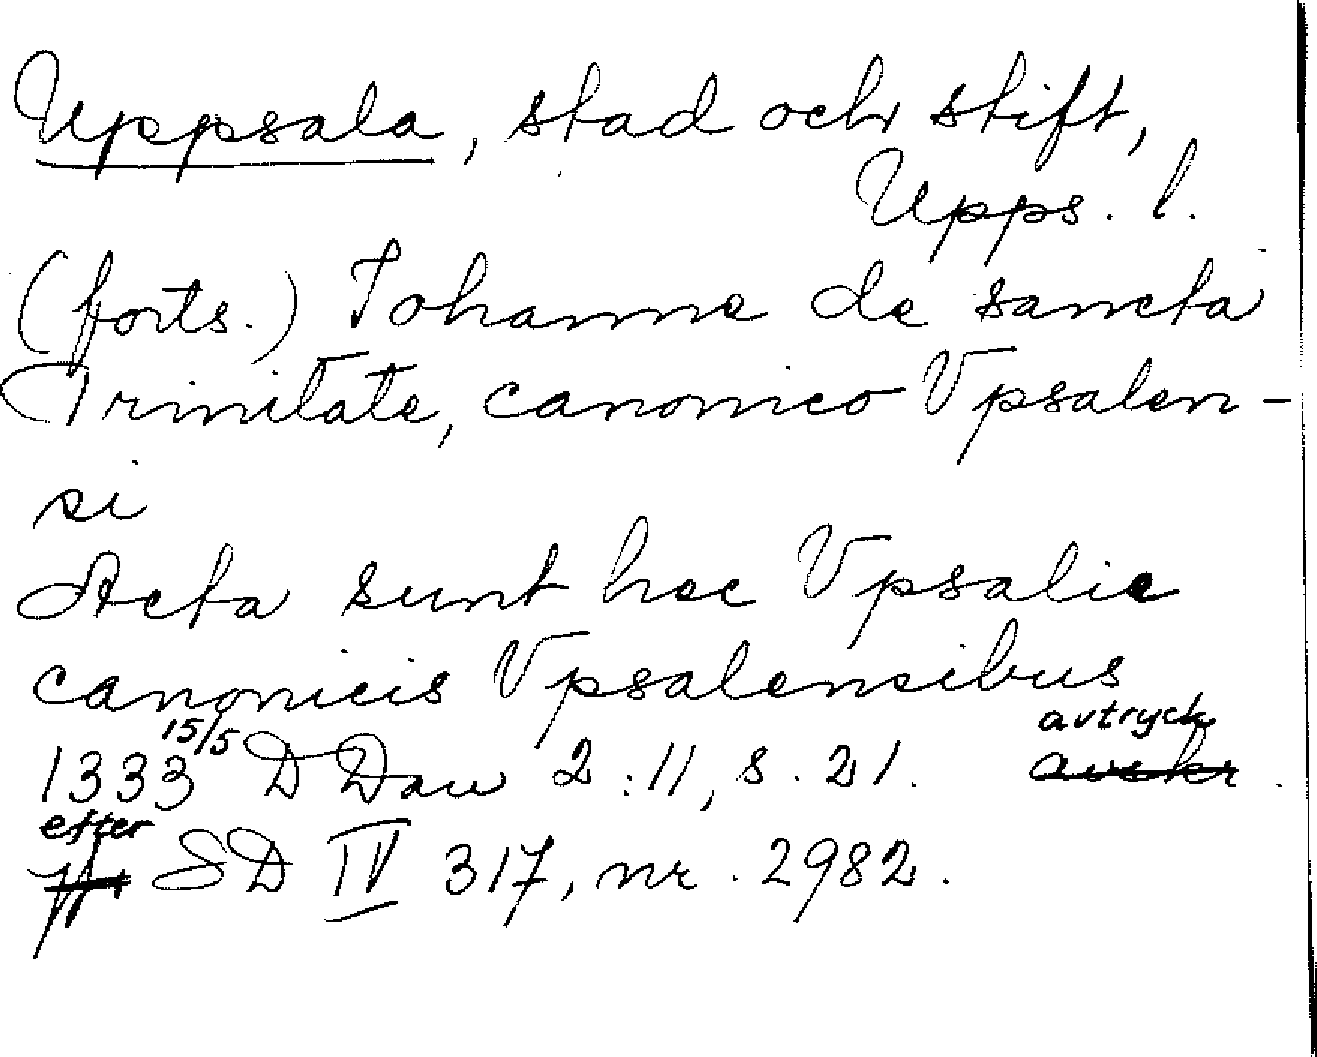 Uppsala, stad och stift,
Upps. l.
(forts.) Johanne de sancta
Trinitate, canonico Vpsalen-
si
Acta sunt hec Vpsalie
canonicis Vpsalensibus
avtryck
1333 15/5 D Dan 2:11, s. 21.
efter
SD IV 317, nr. 2982.